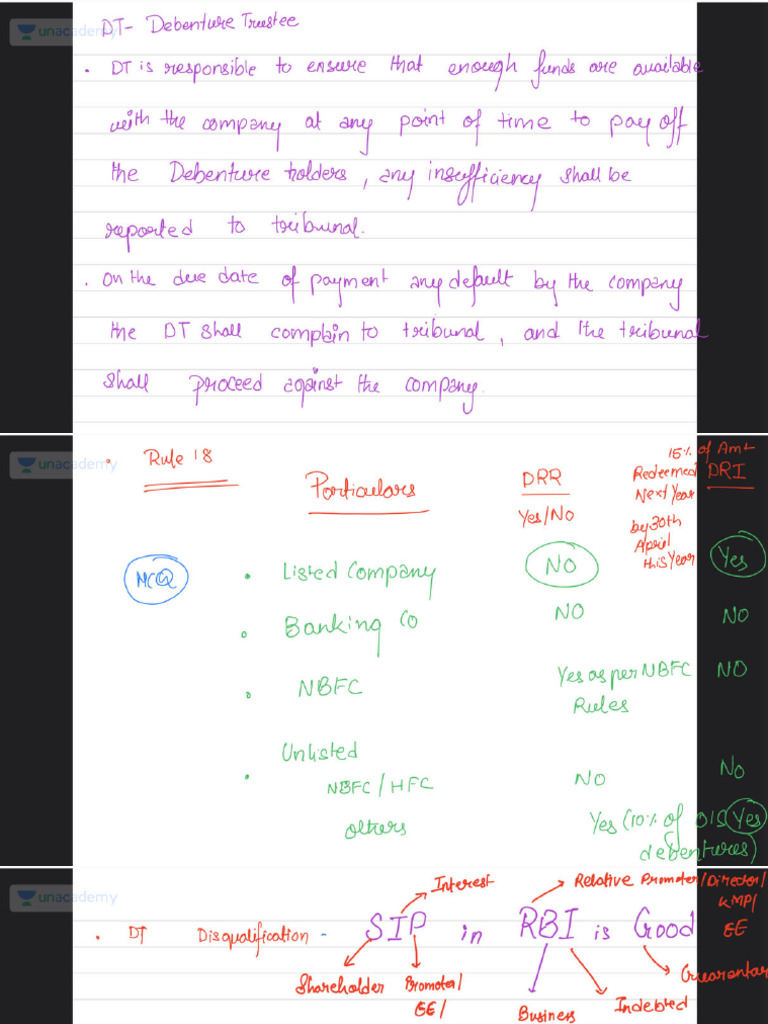 unacademy
DT- Debenture Trustee
• DT is responsible to ensure that enough funds are available
with the company at any point of time to pay off
the Debenture holders, any insufficiency shall be
reported to tribunal.
• On the due date of payment any default by the company
the DT shall complain to tribunal, and the tribunal
shall proceed against the company.
unacademy
• Rule 18
Particulars
DRR
Yes/No
15% of Amt
Redeemed DRI
Next Year
by 30th
April
this Year
MCQ
• Listed Company NO Yes
• Banking Co NO NO
• NBFC Yes as per NBFC NO
Rules
Unlisted
• NBFC/HFC NO No
others Yes (10% of O/S Yes
debentures)
unacademy
Interest
Relative Promoter/Director/
KMP/
EE
• DT Disqualification - SIP in RBI is Good
Shareholder
Promoter/
EE/
Business
Indebted